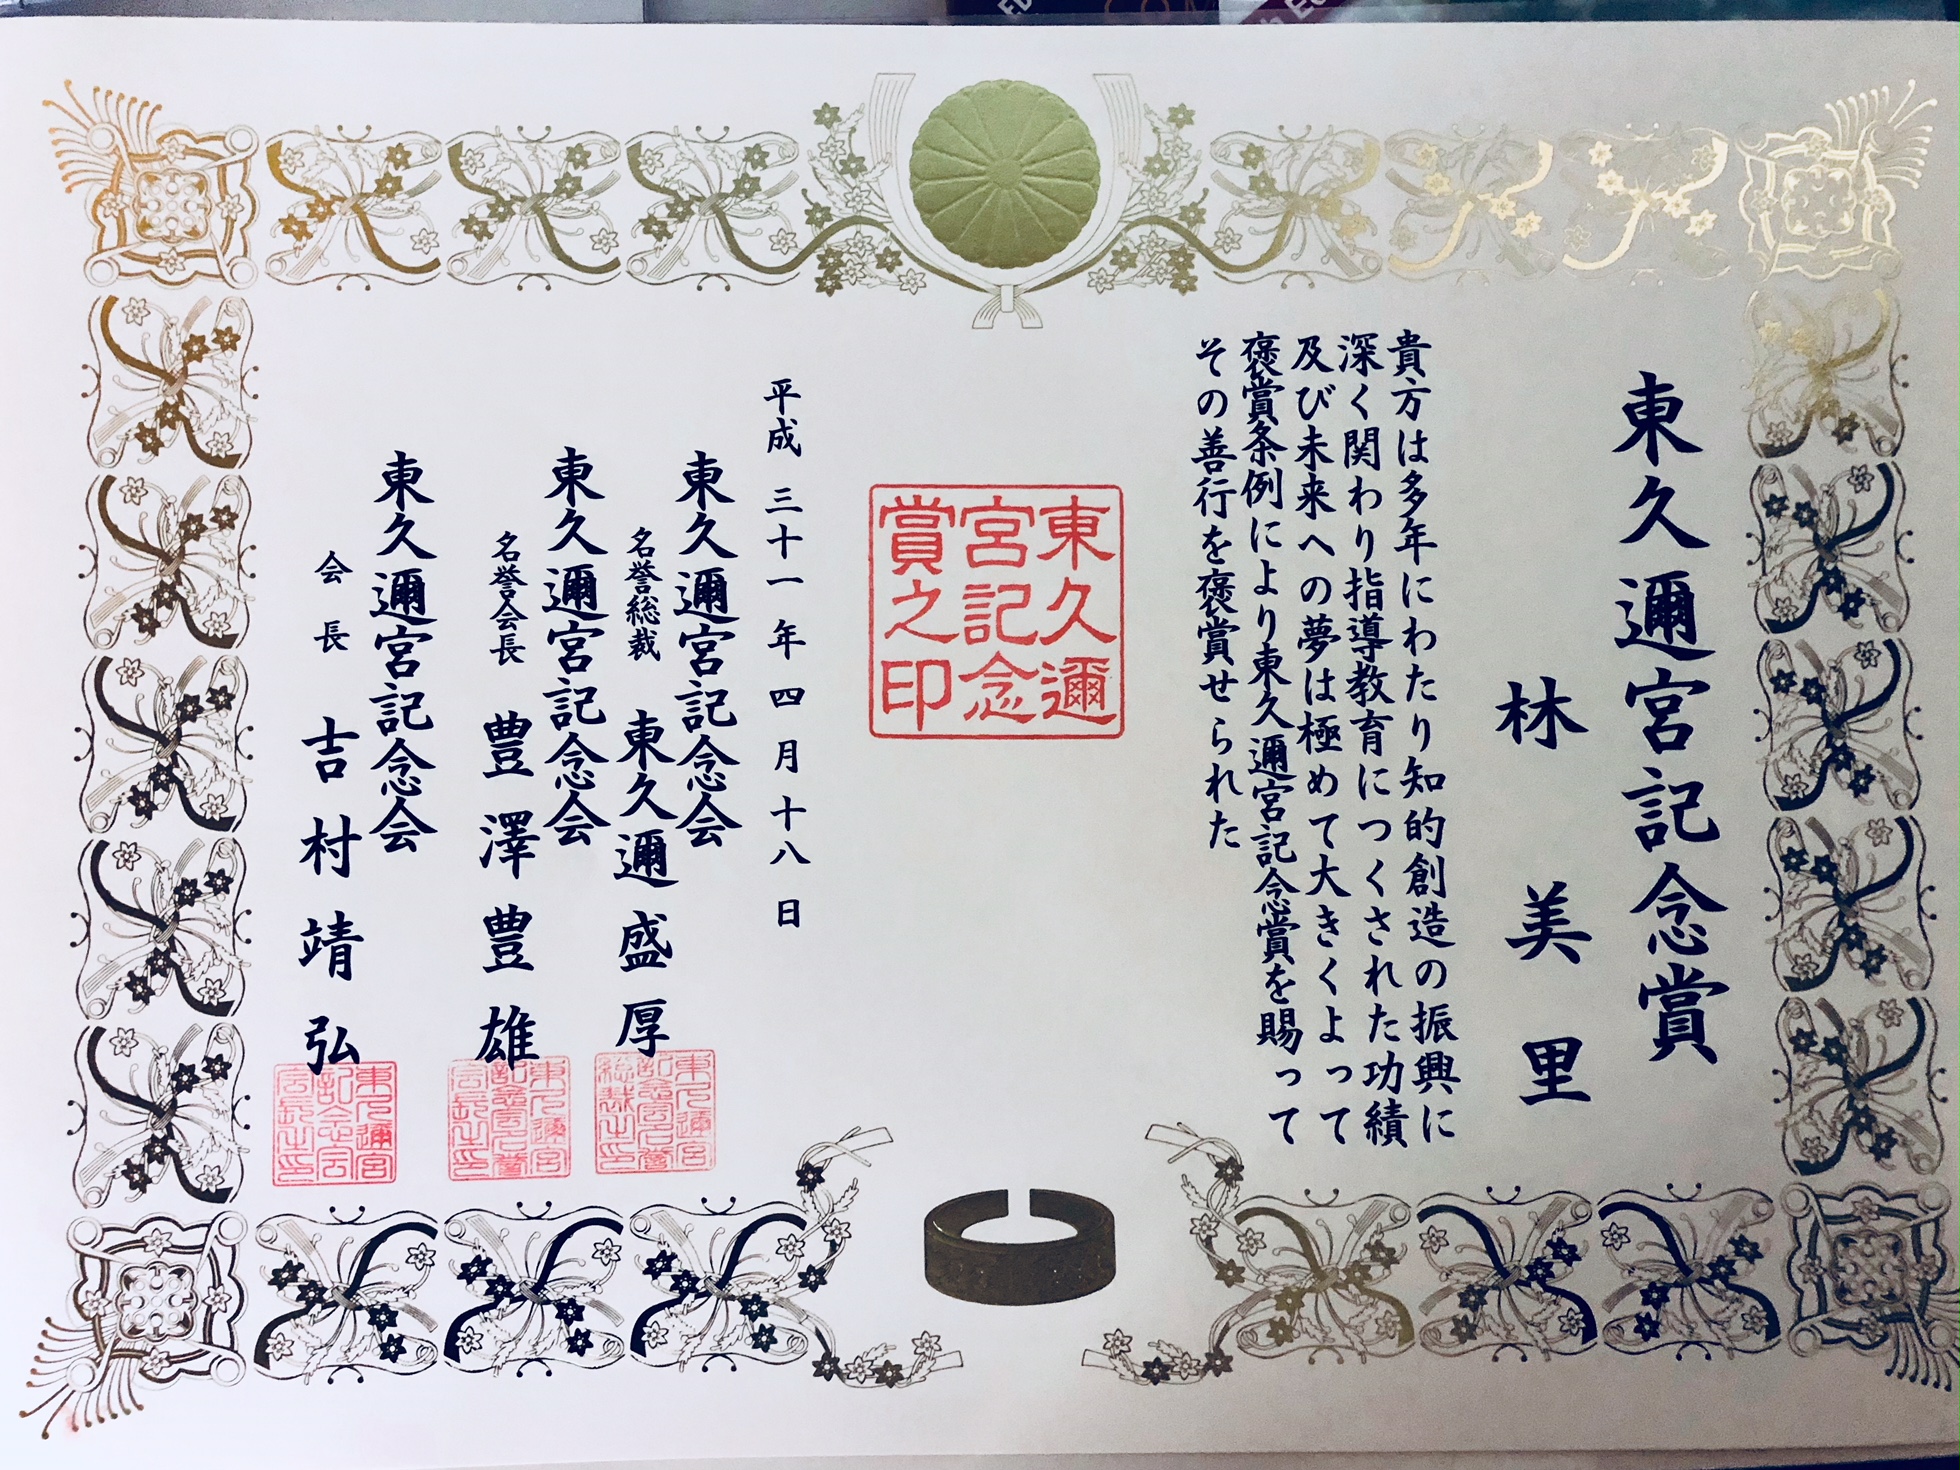 東久邇宮記念賞
林美里
貴方は多年にわたり知的創造の振興に
深く関わり指導教育につくされた功績
及び未来への夢は極めて大きくよって
褒賞条例により東久邇宮記念賞を賜って
その善行を褒賞せられた
東久邇
宮記念
賞之印
平成三十一年四月十八日
東久邇宮記念会
名誉総裁 東久邇盛厚
東久邇宮記念会
名誉会長 豊澤豊雄
東久邇宮記念会
会長 吉村靖弘